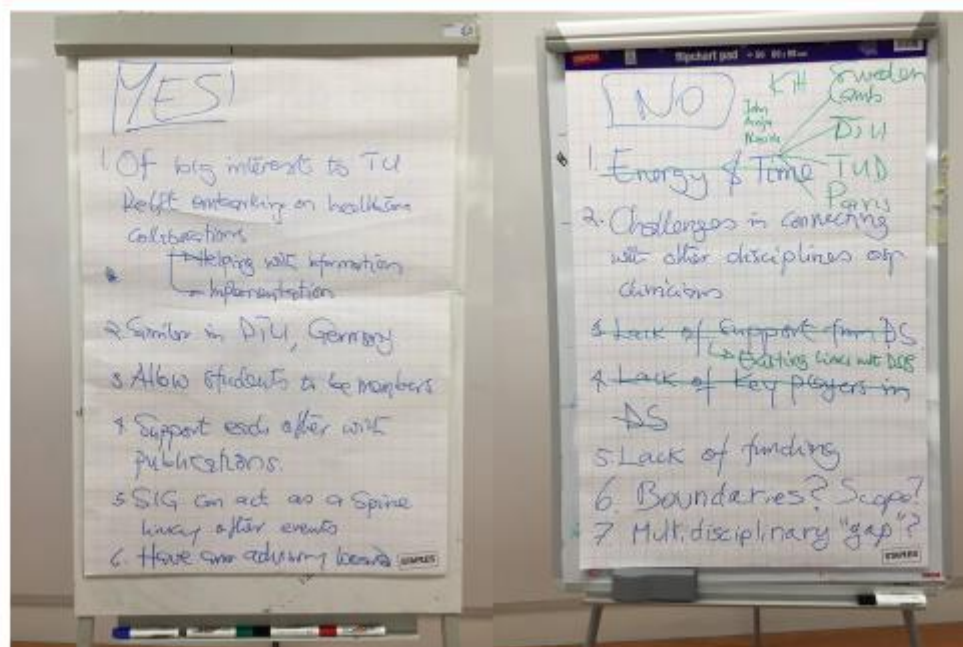 YES
1. Of big interest to TU
Delft embarking on healthcare
collaborations
Helping with information
Implementation
2. Similar in DTU, Germany
3 Allow students to be members
4 Support each other with
publications.
5 SIG can act as a Spine
linking other events
6. Have an advisory board
STAPLES
STAPLES
flipchart pad
NO
KTH
Sweden
Camb
DTU
TUD
Paris
John
1. Energy & Time
2. Challenges in connecting
with other disciplines esp
clinicians
3 Lack of support from DS
Existing links with
4 Lack of key players in
DS
5. Lack of funding
6. Boundaries? Scope?
7 Multidisciplinary "gap"?
STAPLES